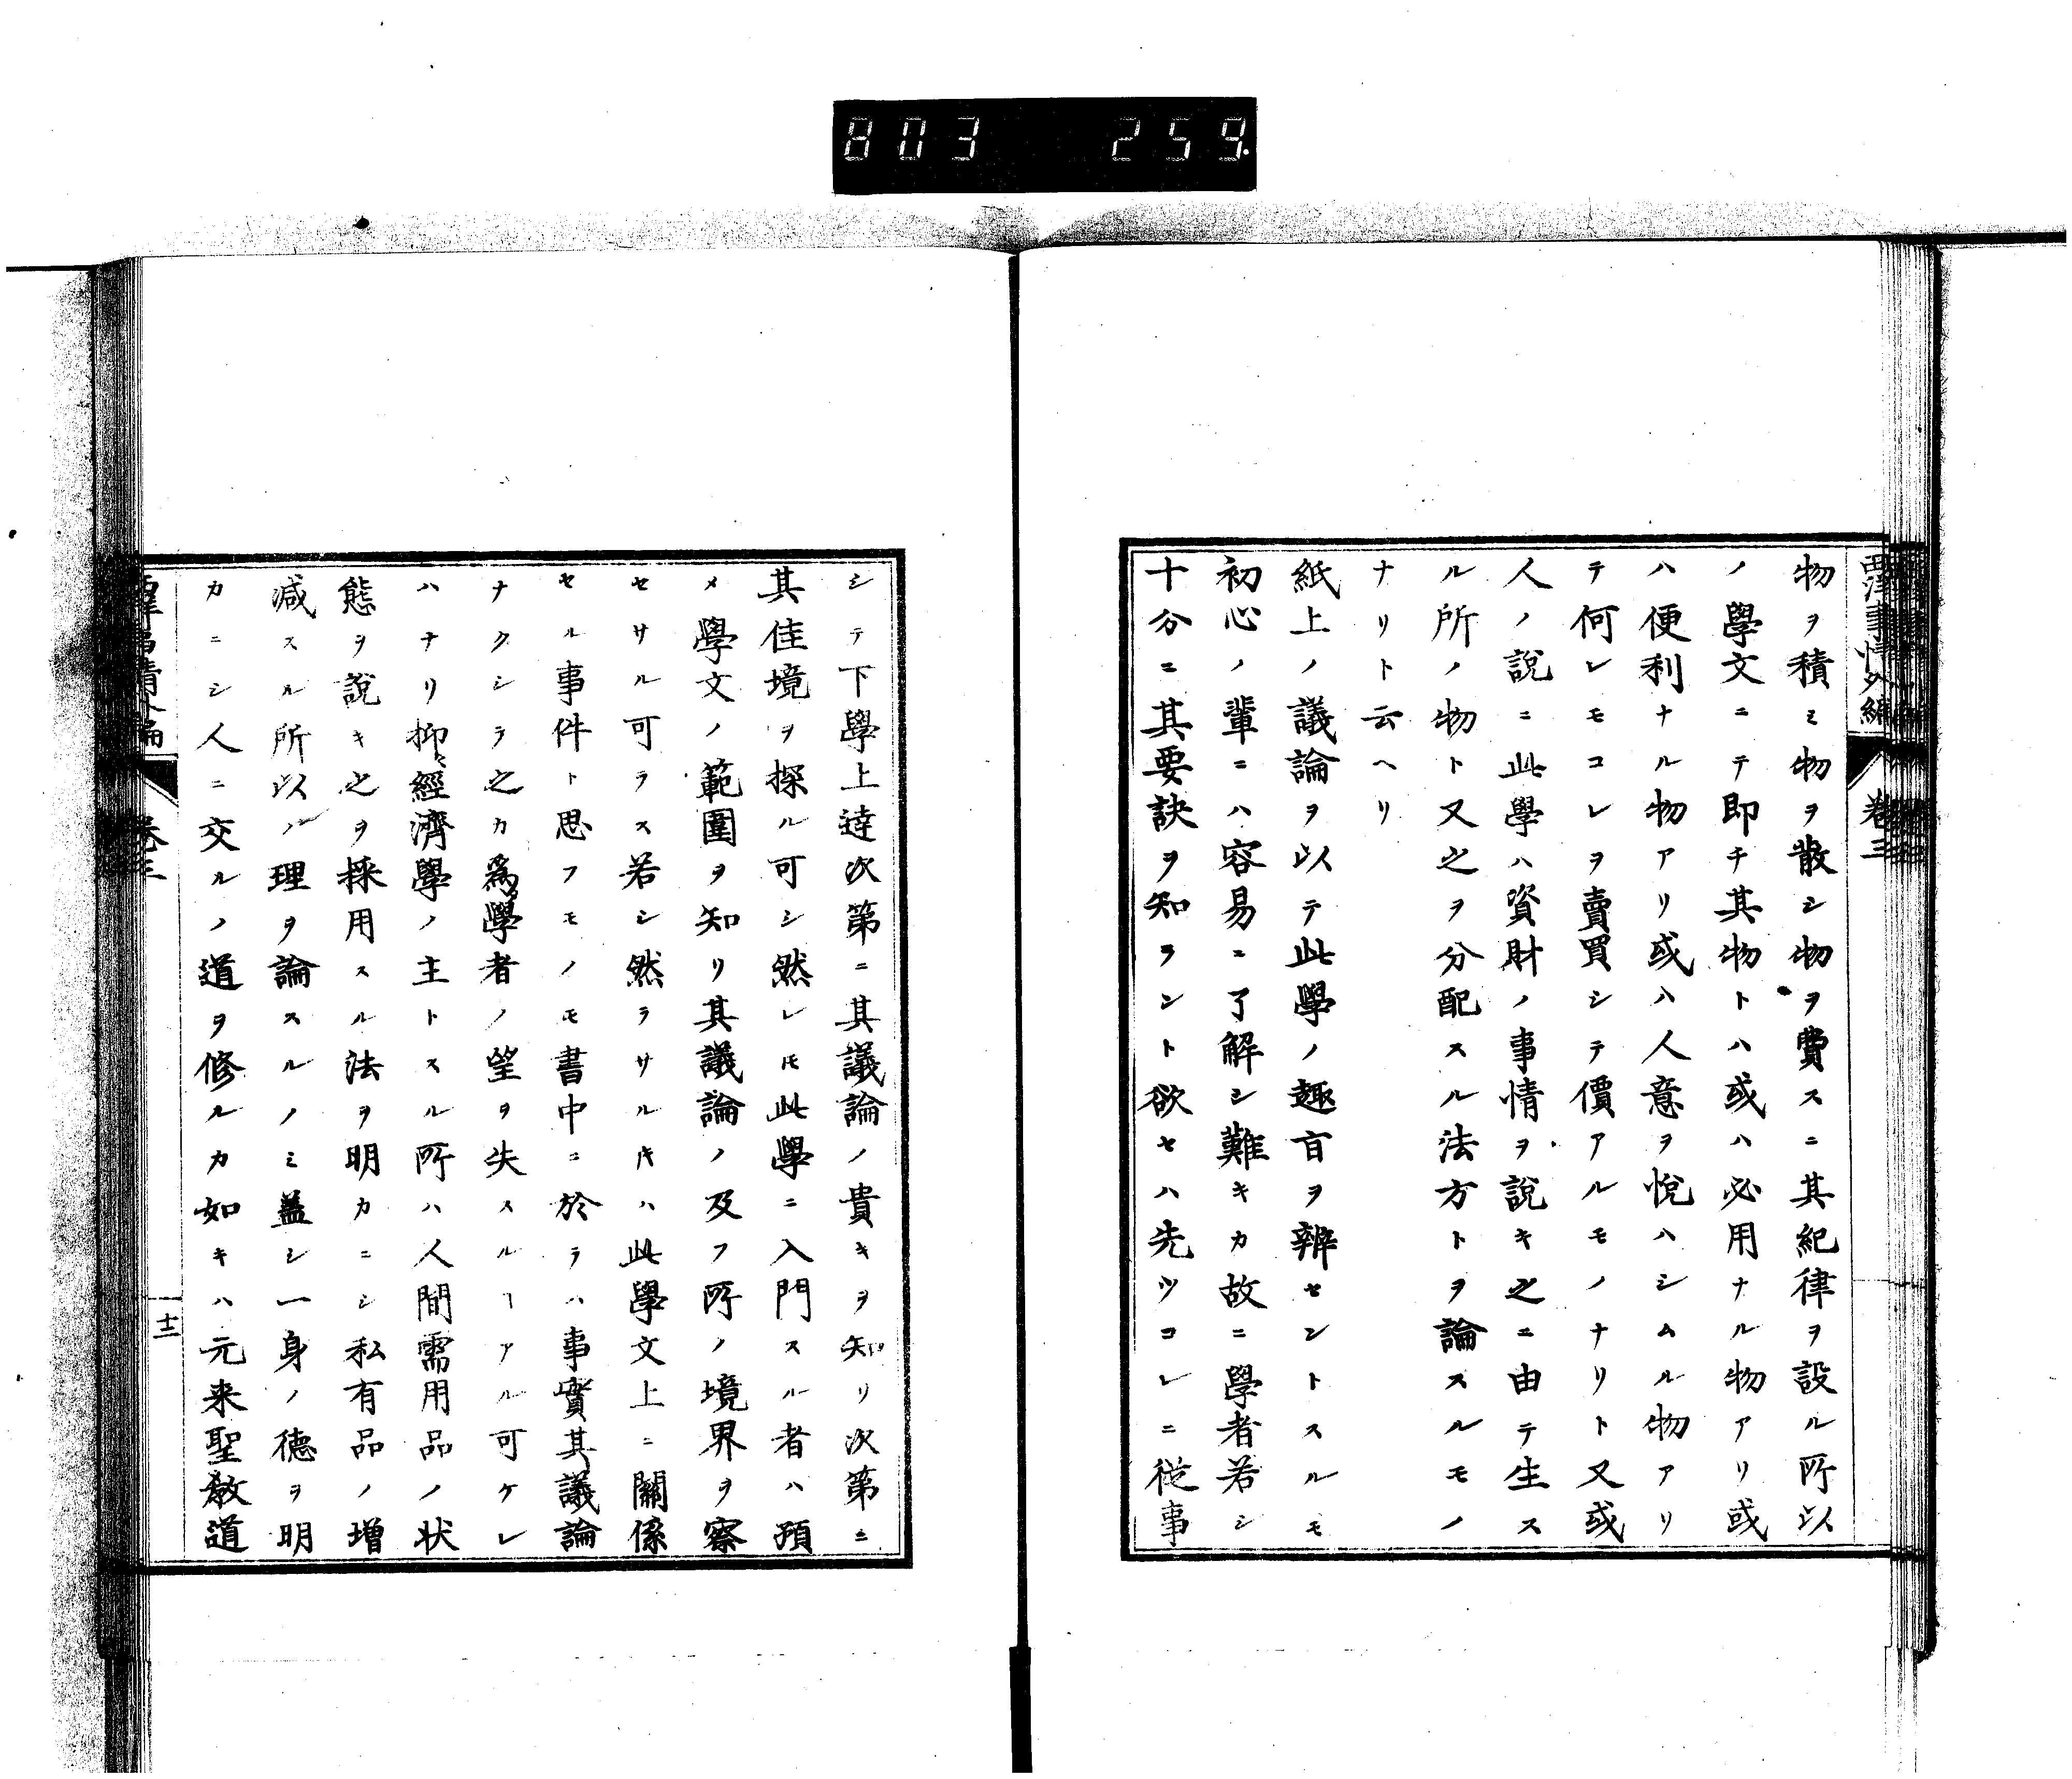 803 259
西洋事情外編 巻三
物ヲ積ミ物ヲ散シ物ヲ費スニ其紀律ヲ設ル所以
ノ學文ニテ即チ其物トハ或ハ必用ナル物アリ或
ハ便利ナル物アリ或ハ人意ヲ悅ハシムル物アリ
テ何レモコレヲ賣買シテ價アルモノナリト又或
人ノ說ニ此學ハ資財ノ事情ヲ說キ之ニ由テ生ス
ル所ノ物ト又之ヲ分配スル法方トヲ論スルモノ
ナリト云ヘリ
紙上ノ議論ヲ以テ此學ノ趣㫖ヲ辨セントスルモ
初心ノ輩ニハ容易ニ了解シ難キカ故ニ學者若シ
十分ニ其要訣ヲ知ラント欲セハ先ツコレニ從事
シテ下學上達次第ニ其議論ノ貴キヲ知リ次第ニ
其佳境ヲ探ル可シ然レ𪜈此學ニ入門スル者ハ預
メ學文ノ範圍ヲ知リ其議論ノ及フ所ノ境界ヲ察
セサル可ラス若シ然ラサル𪜈ハ此學文上ニ關係
セル事件ト思フモノモ書中ニ於テハ事實其議論
ナクシテ之カ爲學者ノ望ヲ失スルヿアル可ケレ
ハナリ抑經濟學ノ主トスル所ハ人間需用品ノ状
態ヲ說キ之ヲ採用スル法ヲ明カニシ私有品ノ增
减スル所以ノ理ヲ論スルノミ葢シ一身ノ德ヲ明
カニシ人ニ交ルノ道ヲ修ルカ如キハ元来聖教道
巻三
十二